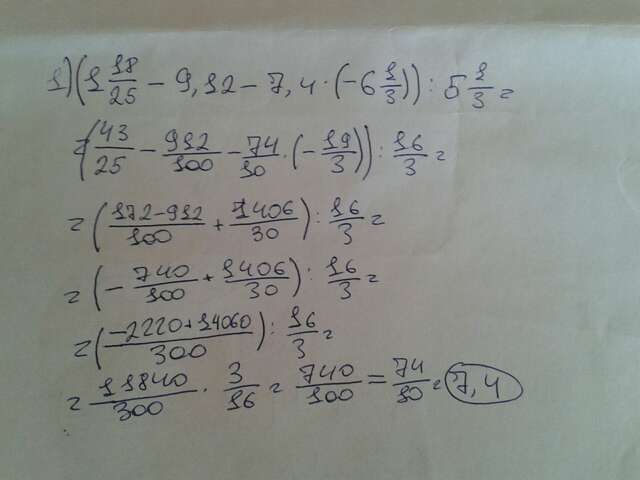 1) (1 18/25 - 9,12 - 7,4 · (-6 1/3)) : 5 1/3 =
= (43/25 - 912/100 - 74/10 · (-19/3)) : 16/3 =
= (172-912/100 + 1406/30) : 16/3 =
= (-740/100 + 1406/30) : 16/3 =
= (-2220+14060/300) : 16/3 =
= 11840/300 · 3/16 = 740/100 = 74/10 = 7,4